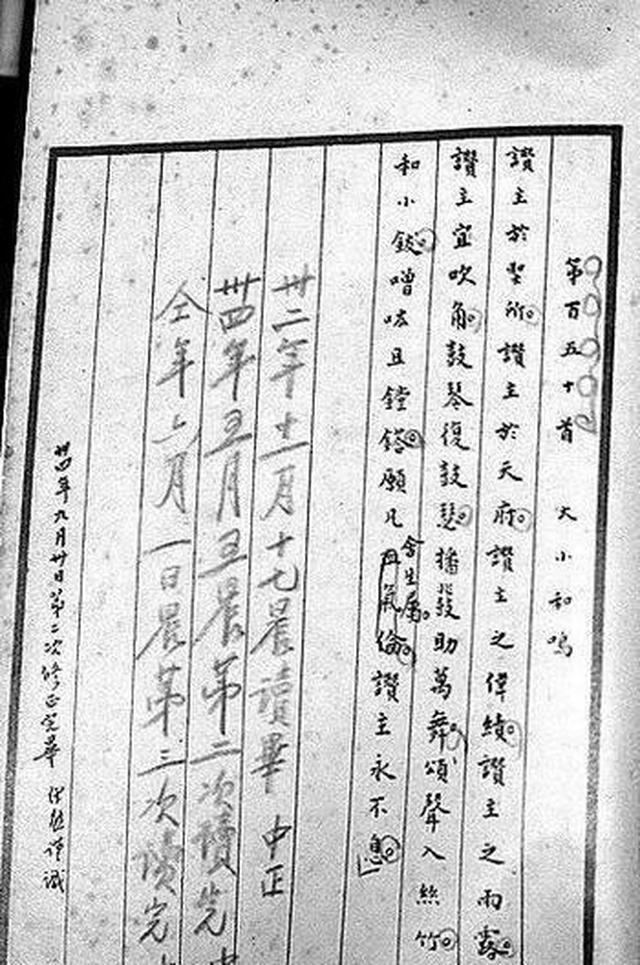 第百五十首 大小和鳴
讚主於聖所。讚主於天府。讚主之偉績。讚主之雨露。
讚主宜吹角。鼓琴復鼓瑟。播鼗助萬舞。頌聲入絲竹。
和小鈸。噌吰且鏜鎝。願凡具氣倫。讚主永不息。」
含生屬。
卅二年十一月十七晨讀畢 中正
卅四年五月五晨第二次讀完
仝年六月一日晨第三次讀完
卅四年九月卅日第二次修正完畢 經熊謹識